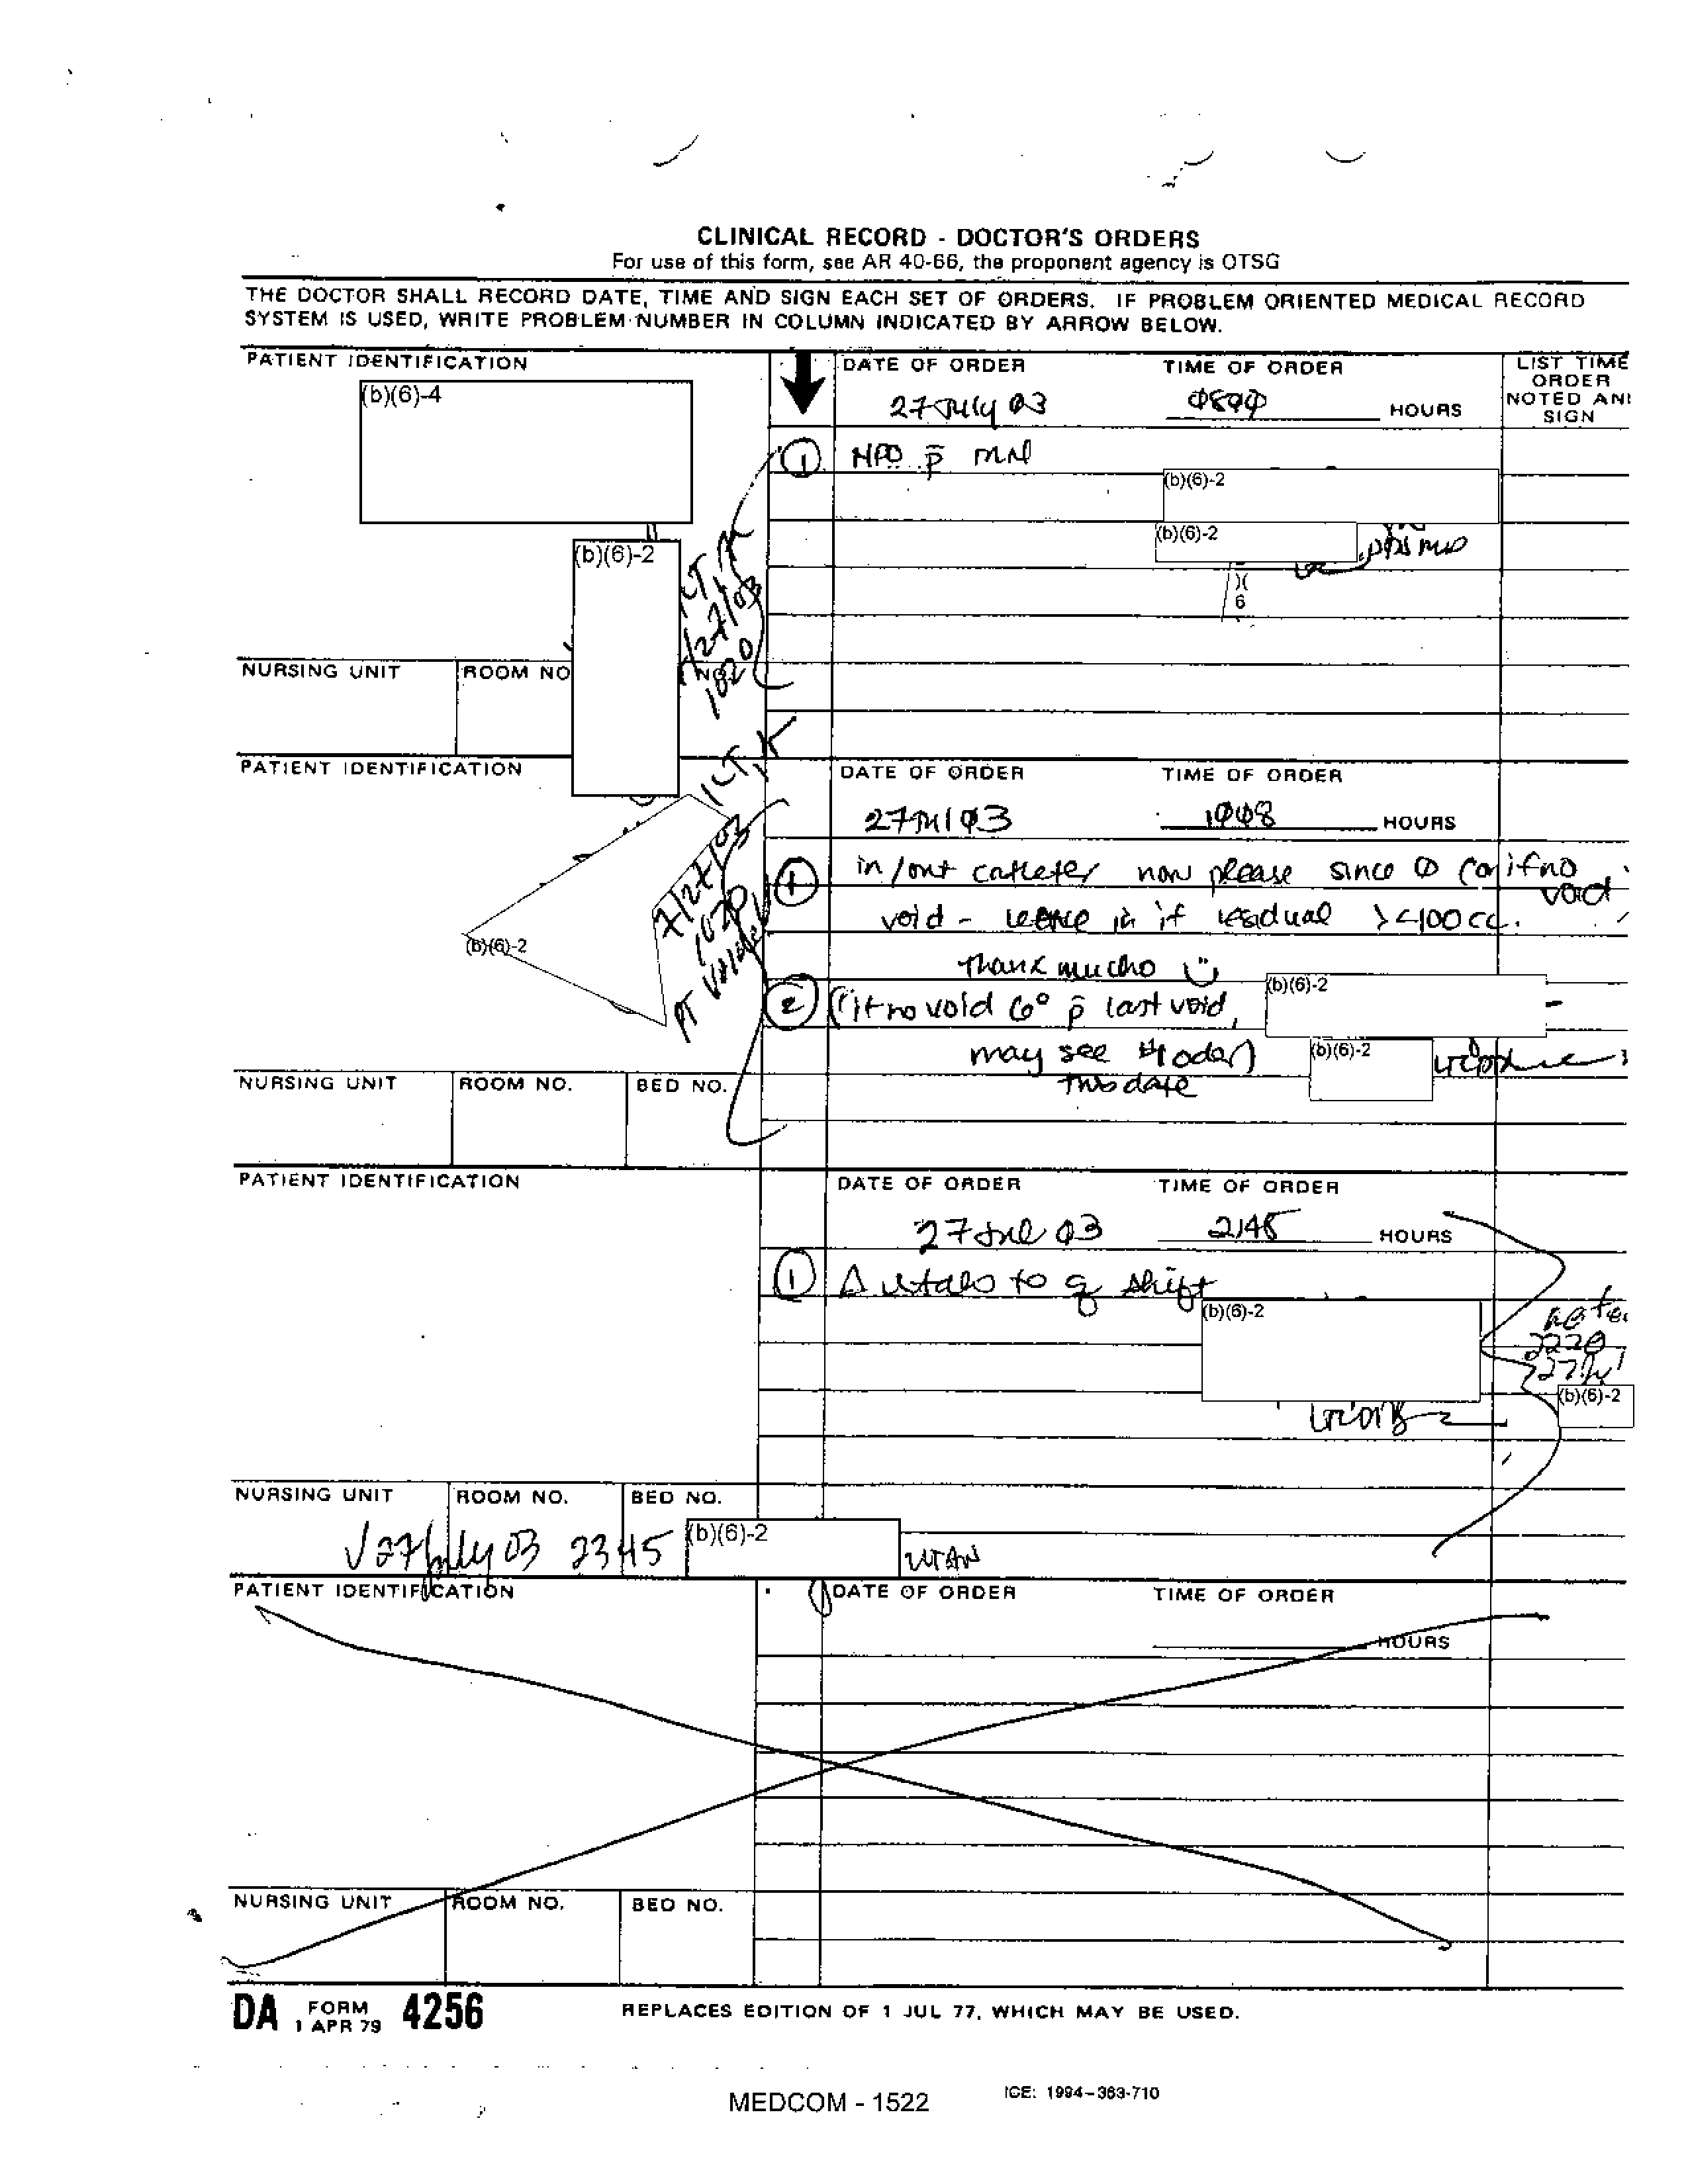 CLINICAL RECORD - DOCTOR'S ORDERS
For use of this form, see AR 40-66, the proponent agency is OTSG
THE DOCTOR SHALL RECORD DATE, TIME AND SIGN EACH SET OF ORDERS. IF PROBLEM ORIENTED MEDICAL RECORD
SYSTEM IS USED, WRITE PROBLEM NUMBER IN COLUMN INDICATED BY ARROW BELOW.
PATIENT IDENTIFICATION
(b)(6)-4
DATE OF ORDER
27 July 03
TIME OF ORDER
HOURS
LIST TIME
ORDER
NOTED AN
SIGN
① NPO p̄ MN
(b)(6)-2
(b)(6)-2
)(
6
(b)(6)-2
7/27/03
1020
NURSING UNIT
ROOM NO
PATIENT IDENTIFICATION
7/27/03
1020
PT
(b)(6)-2
DATE OF ORDER
27 Jul 03
TIME OF ORDER
1008 HOURS
① in/out catheter now please since Ø (or if no
void
void - leave in if residual > 400 cc.
Thank mucho
② (if no void 6° p̄ last void,
may see #1 order)
this date
(b)(6)-2
(b)(6)-2
NURSING UNIT
ROOM NO.
BED NO.
PATIENT IDENTIFICATION
DATE OF ORDER
27 Jul 03
TIME OF ORDER
2145 HOURS
① Δ vitals to q shift
(b)(6)-2
2220
(b)(6)-2
NURSING UNIT
ROOM NO.
BED NO.
√ 27 July 03 2345
(b)(6)-2
PATIENT IDENTIFICATION
DATE OF ORDER
TIME OF ORDER
HOURS
NURSING UNIT
ROOM NO.
BED NO.
DA FORM 4256
1 APR 79
REPLACES EDITION OF 1 JUL 77, WHICH MAY BE USED.
MEDCOM - 1522
ICE: 1994-363-710